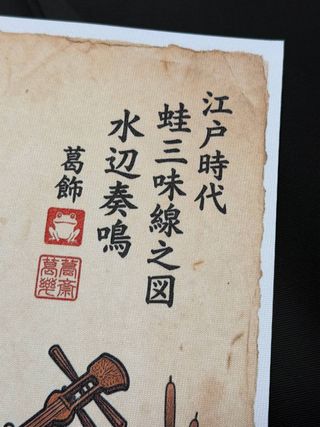 江戸時代
蛙三味線之図
水辺奏鳴
葛飾